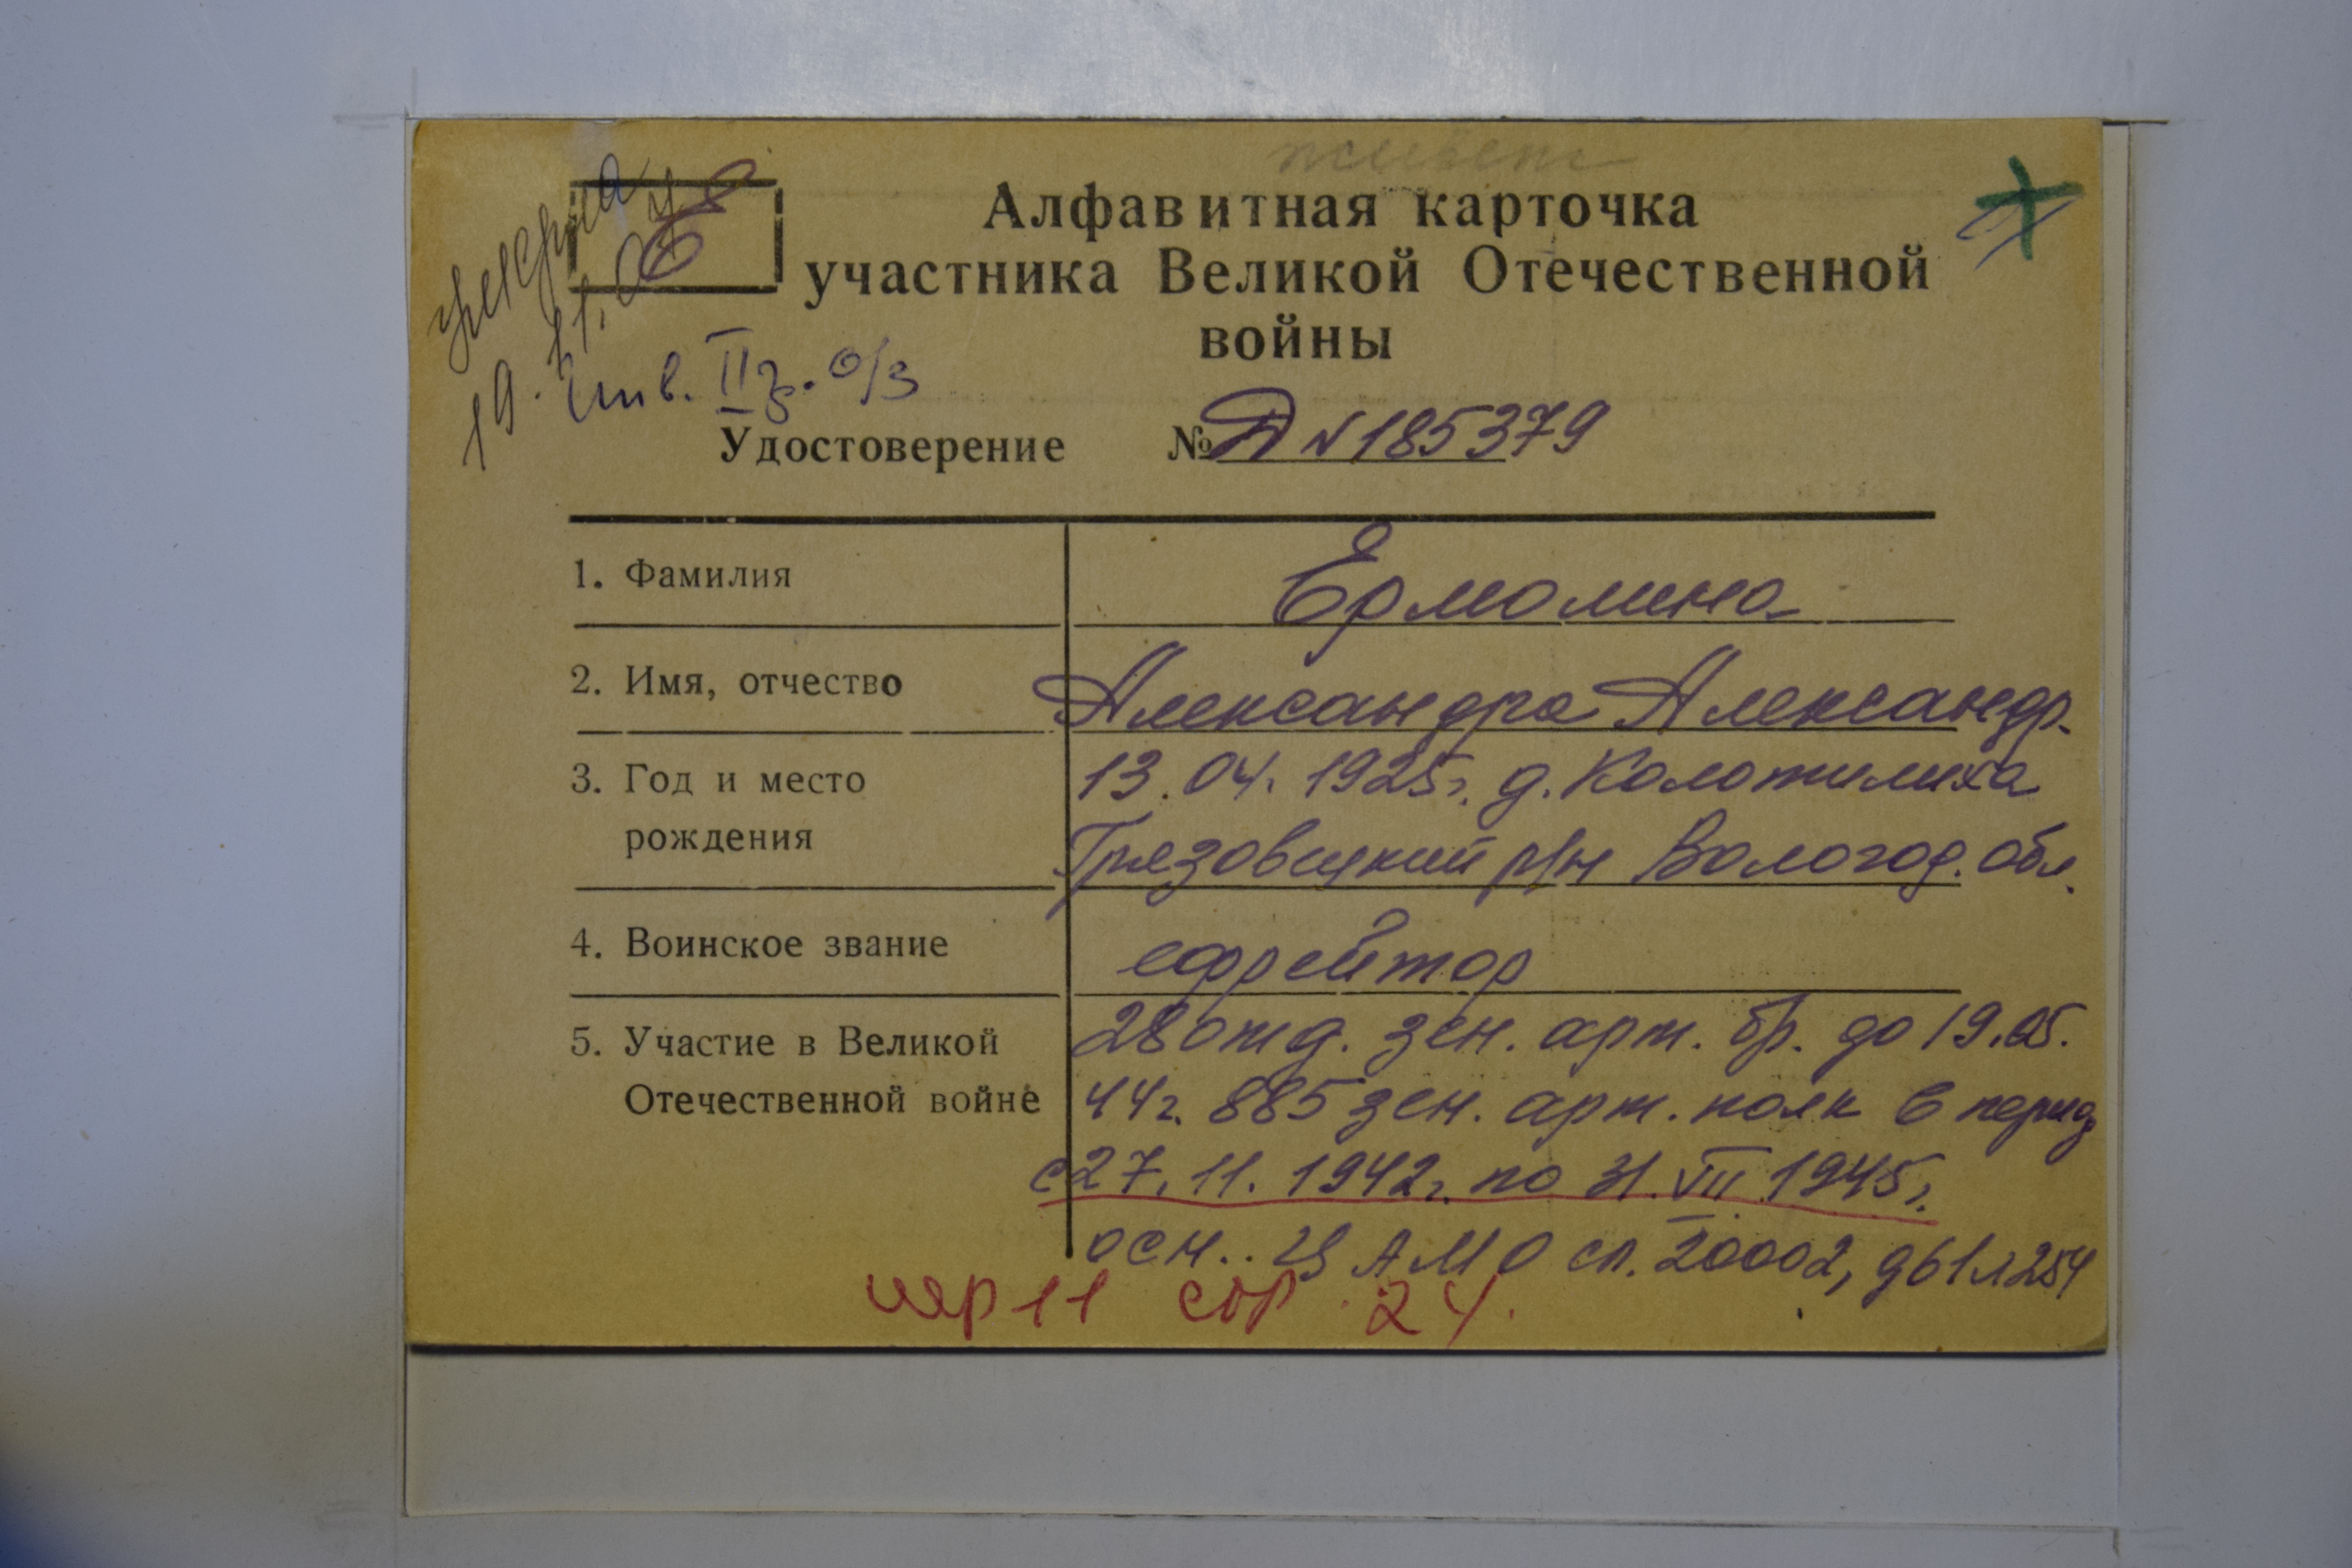 Е
умерла
19.11.04 г
Инв. II г. о/з
Алфавитная карточка
участника Великой Отечественной
войны
Удостоверение № Д № 185379
1. Фамилия Ермолина
2. Имя, отчество Александра Александр.
3. Год и место 13.04.1925г. д. Колотилиха
рождения Грязовецкий р/н Вологод. обл.
4. Воинское звание ефрейтор
5. Участие в Великой 28 отд. зен. арт. бр. до 19.05.
Отечественной войне 44г. 885 зен. арт. полк в период
с 27.11.1942г. по 31.VIII 1945г.
осн.. ЦАМО оп. 20002, д61л254
11 24